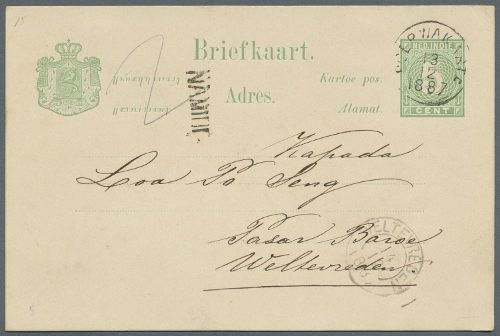 15
Briefkaart.
Kartoe pos.
Adres.
Alamat.
NED. INDIE
CENT
13
12
1887
Kapada
Loa Po Seng
Pasar Baroe
Weltevreden
WELTEVREDEN